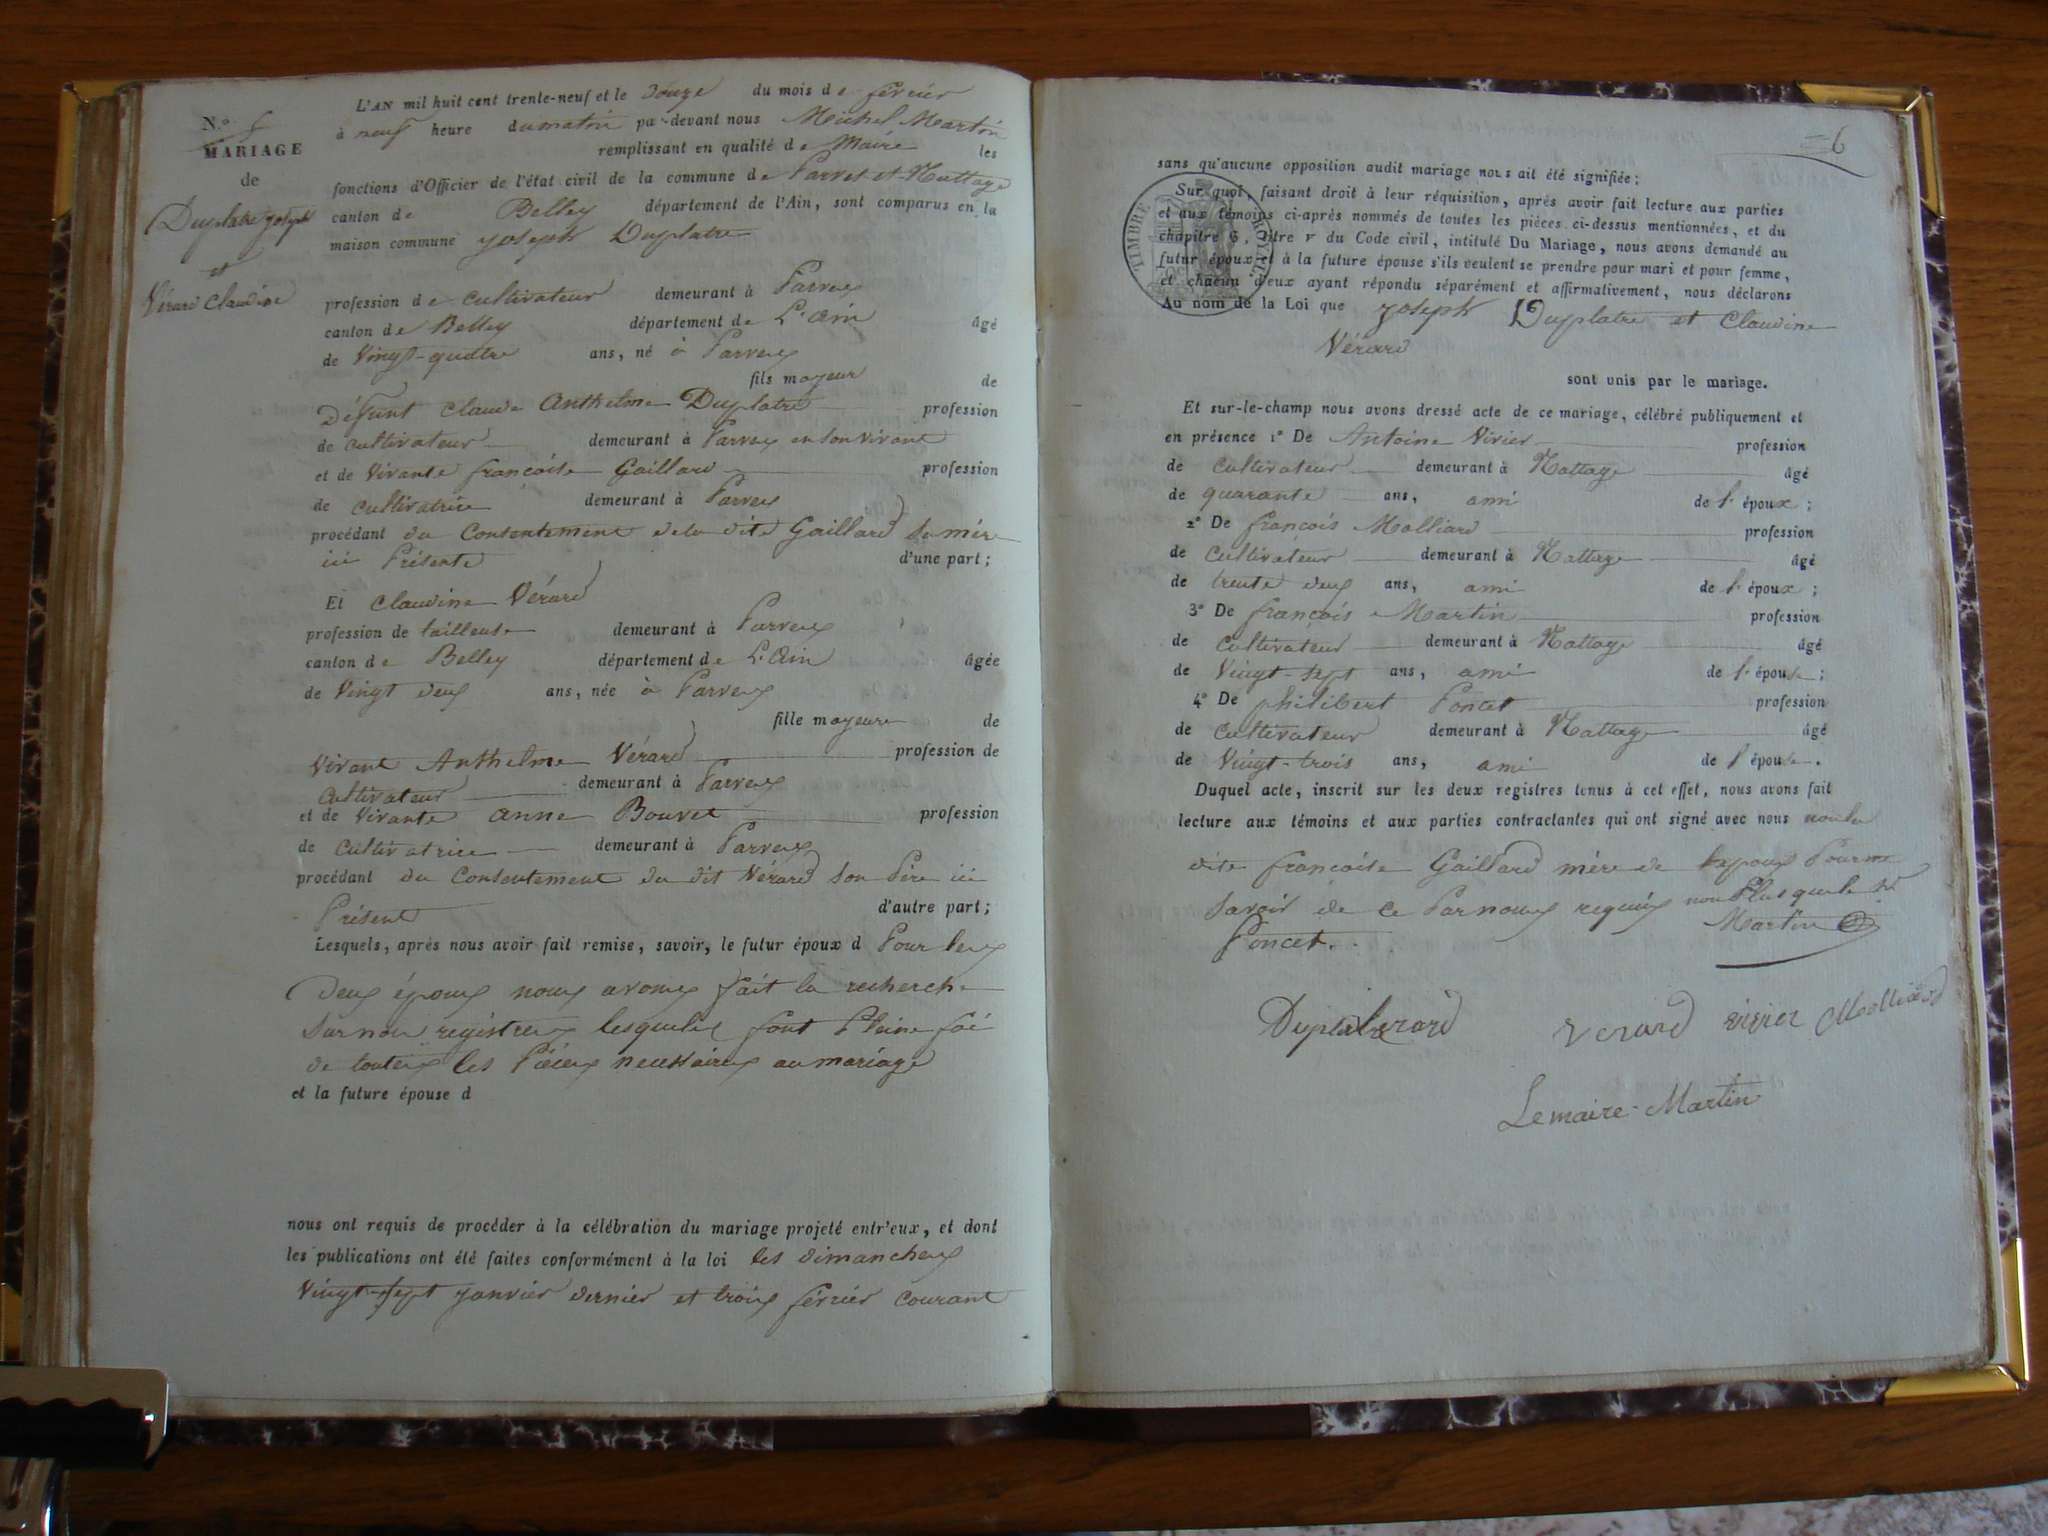 N.º 5
MARIAGE
de
Duplatre joseph
et
Vérard Claudine
L'AN mil huit cent trente-neuf et le Douze du mois de février
à neuf heure du matin par-devant nous Michel Martin
remplissant en qualité de Maire les
fonctions d'Officier de l'état civil de la commune de Parves et Nattage
canton de Belley département de l'Ain, sont comparus en la
maison commune joseph Duplatre
profession de cultivateur demeurant à Parves
canton de Belley département de L'Ain âgé
de Vingt-quatre ans, né à Parves
fils majeur de
Défunt Claude Anthelme Duplatre profession
de cultivateur demeurant à Parves en son vivant
et de Vivante françoise Gaillard profession
de cultivatrice demeurant à Parves
procédant du Consentement de la dite Gaillard sa mère
ici Présente d'une part;
Et Claudine Vérard
profession de tailleuse demeurant à Parves
canton de Belley département de L'Ain âgée
de Vingt deux ans, née à Parves
fille majeure de
Vivant Anthelme Vérard profession de
Cultivateur demeurant à Parves
et de Vivante anne Bouvet profession
de Cultivatrice demeurant à Parves
procédant du Consentement du dit Vérard son Père ici
Présent d'autre part;
Lesquels, après nous avoir fait remise, savoir, le futur époux d Pour les
Deux époux nous avons fait la recherche
sur nos registres lesquels font Pleine foi
de toutes les Pièces necessaires au mariage
et la future épouse d
nous ont requis de procéder à la célébration du mariage projeté entr'eux, et dont
les publications ont été faites conformément à la loi les dimanches
Vingt-sept janvier dernier et trois février courant
6
sans qu'aucune opposition audit mariage nous ait été signifiée;
Sur quoi, faisant droit à leur réquisition, après avoir fait lecture aux parties
et aux témoins ci-après nommés de toutes les pièces ci-dessus mentionnées, et du
chapitre 6, titre v du Code civil, intitulé Du Mariage, nous avons demandé au
futur époux et à la future épouse s'ils veulent se prendre pour mari et pour femme,
et chacun d'eux ayant répondu séparément et affirmativement, nous déclarons
Au nom de la Loi que joseph Duplatre et Claudine
Vérard
sont unis par le mariage.
TIMBRE ROYAL
Et sur-le-champ nous avons dressé acte de ce mariage, célébré publiquement et
en présence 1º De Antoine Vivier profession
de Cultivateur demeurant à Nattage âgé
de quarante ans, ami de l'époux;
2º De françois Molliard profession
de Cultivateur demeurant à Nattage âgé
de trente deux ans, ami de l'époux;
3º De françois Martin profession
de Cultivateur demeurant à Nattage âgé
de Vingt-sept ans, ami de l'épouse;
4º De philibert Poncet profession
de Cultivateur demeurant à Nattage âgé
de Vingt-trois ans, ami de l'épouse.
Duquel acte, inscrit sur les deux registres tenus à cet effet, nous avons fait
lecture aux témoins et aux parties contractantes qui ont signé avec nous non la
dite françoise Gaillard mère de lepoux Pour ne
savoir de ce Par nous requis non Plus que le sr
Poncet. Martin
Duplatre Verard Verard vivier Molliard
Lemaire Martin